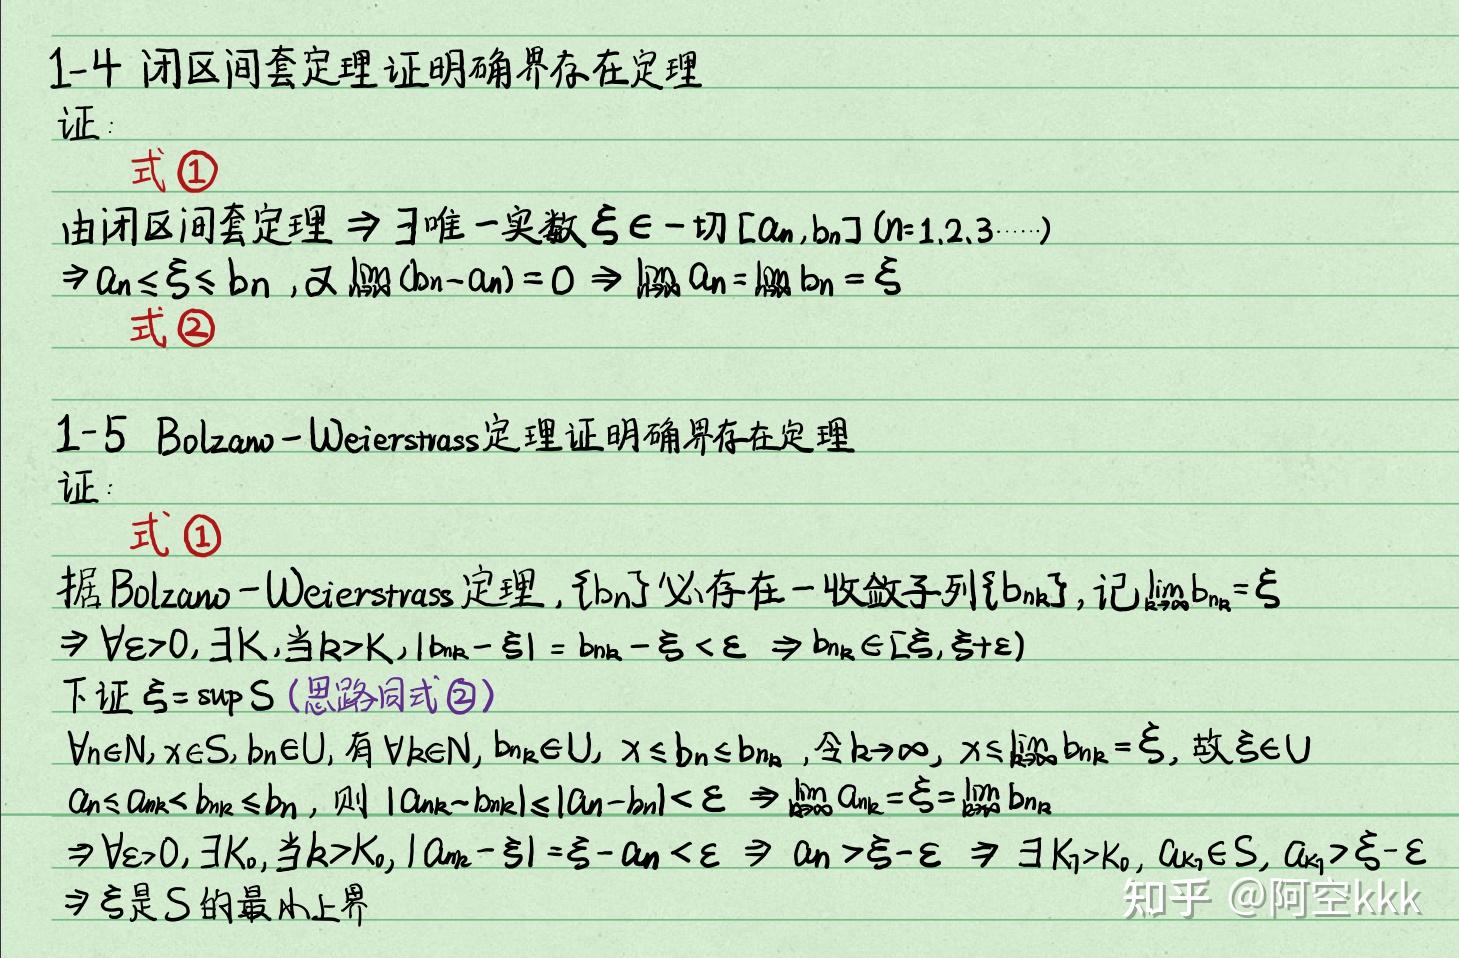 1-4 闭区间套定理证明确界存在定理
证:
式①
由闭区间套定理 ⇒ ∃唯一实数 ξ ∈ 一切 [an, bn] (n=1.2.3……)
⇒ an ≤ ξ ≤ bn , 又 lim(bn-an) = 0 ⇒ lim an = lim bn = ξ
式②
1-5 Bolzano-Weierstrass定理证明确界存在定理
证:
式①
据Bolzano-Weierstrass定理, {bn}必存在一收敛子列{bnk}, 记 lim k→∞ bnk = ξ
⇒ ∀ε>0, ∃K, 当k>K, |bnk-ξ| = bnk-ξ < ε ⇒ bnk∈[ξ, ξ+ε)
下证 ξ = sup S (思路同式②)
∀n∈N, x∈S, bn∈U, 有∀k∈N, bnk∈U, x ≤ bn ≤ bnk , 令k→∞, x ≤ lim k→∞ bnk = ξ, 故ξ∈U
an ≤ ank < bnk ≤ bn , 则 |ank-bnk| ≤ |an-bn| < ε ⇒ lim k→∞ ank = ξ = lim k→∞ bnk
⇒ ∀ε>0, ∃K0, 当k>K0, |ank-ξ| = ξ-an < ε ⇒ an > ξ-ε ⇒ ∃K1>K0, aK1∈S, aK1 > ξ-ε
⇒ ξ是S的最小上界
知乎 @阿空kkk